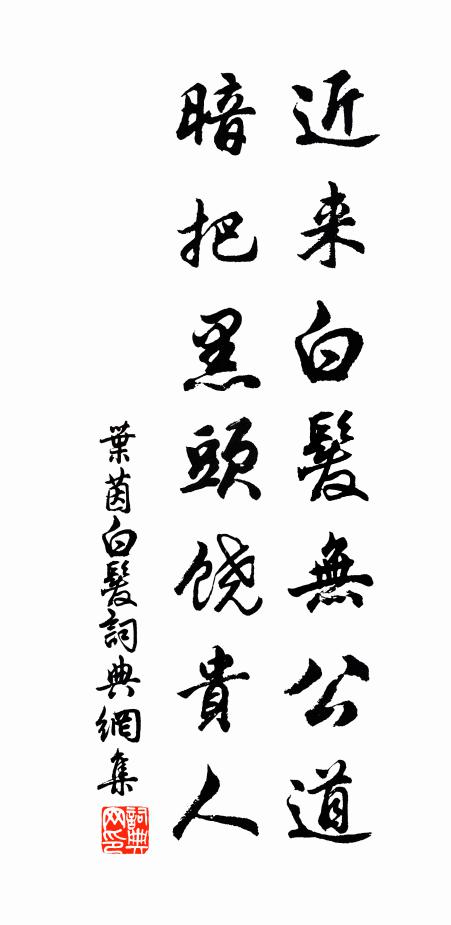 近来白髮無公道
暗把黑頭饒貴人
葉茵白髮詞典網集
詞典网印